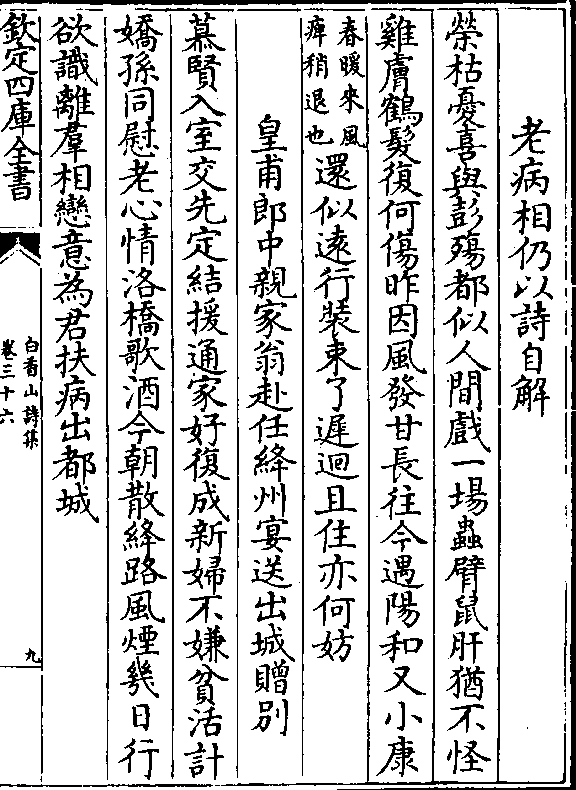 老病相仍以詩自解
榮枯憂喜與彭殤都似人間戲一場蟲臂鼠肝猶不怪
雞膚鶴髮復何傷昨因風發甘長往今遇陽和又小康
春暖來風
痺稍退也
還似遠行裝束了遲迴且住亦何妨
皇甫郎中親家翁赴任絳州宴送出城贈別
慕賢入室交先定結援通家好復成新婦不嫌貧活計
嬌孫同慰老心情洛橋歌酒今朝散絳路風煙幾日行
欲識離羣相戀意為君扶病出都城
欽定四庫全書
白香山詩集
卷三十六
九